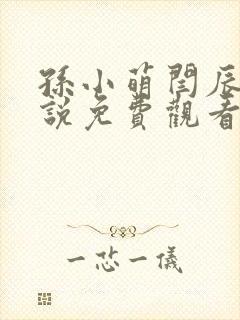 孫小萌閆辰
說免費觀看
一芯一儀